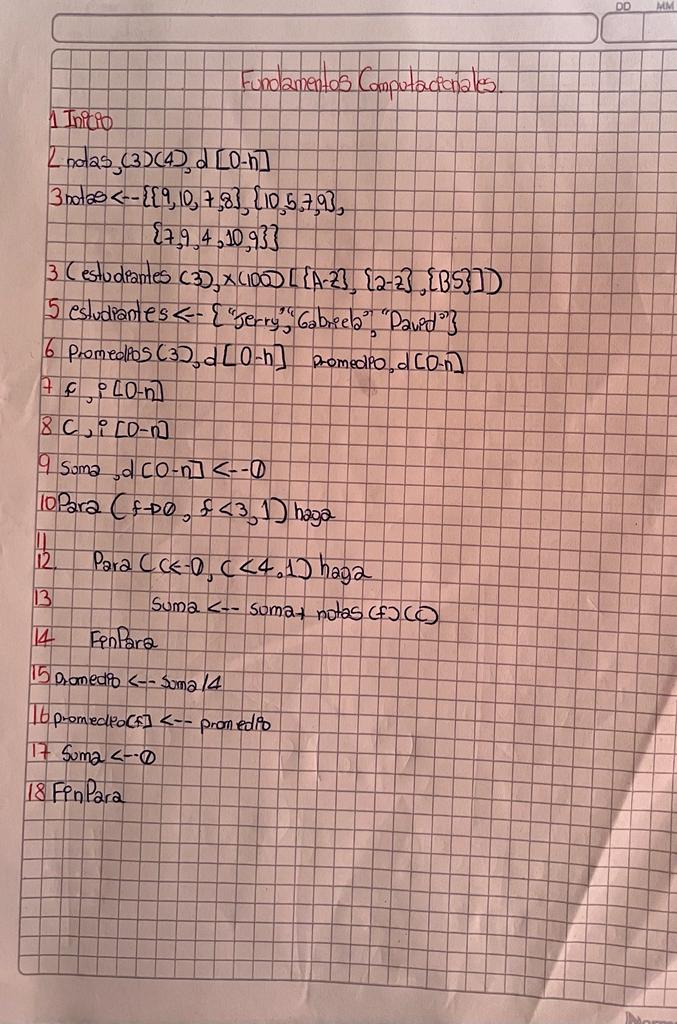 DD MM
Fundamentos Computacionales.
1 Inicio
2 notas,(3)(4), d [0-n]
3 notas <-- {{9,10,7,8}, {10,5,7,9},
{7,9,4,10,9}}
3 (estudiantes (3), x(100) [{A-Z}, {a-z}, {BS}])
5 estudiantes <-- {"Jerry", "Gabriela", "David"}
6 promedios (3), d [0-n] promedio, d [0-n]
7 f, i [0-n]
8 C, i [0-n]
9 Suma, d [0-n] <-- 0
10 Para (f->0, f<3, 1) haga
11
12 Para (C<-0, C<4, 1) haga
13 Suma <-- suma + notas (f) (c)
14 FinPara
15 promedio <-- Suma/4
16 promedio[f] <-- promedio
17 Suma <-- 0
18 FinPara